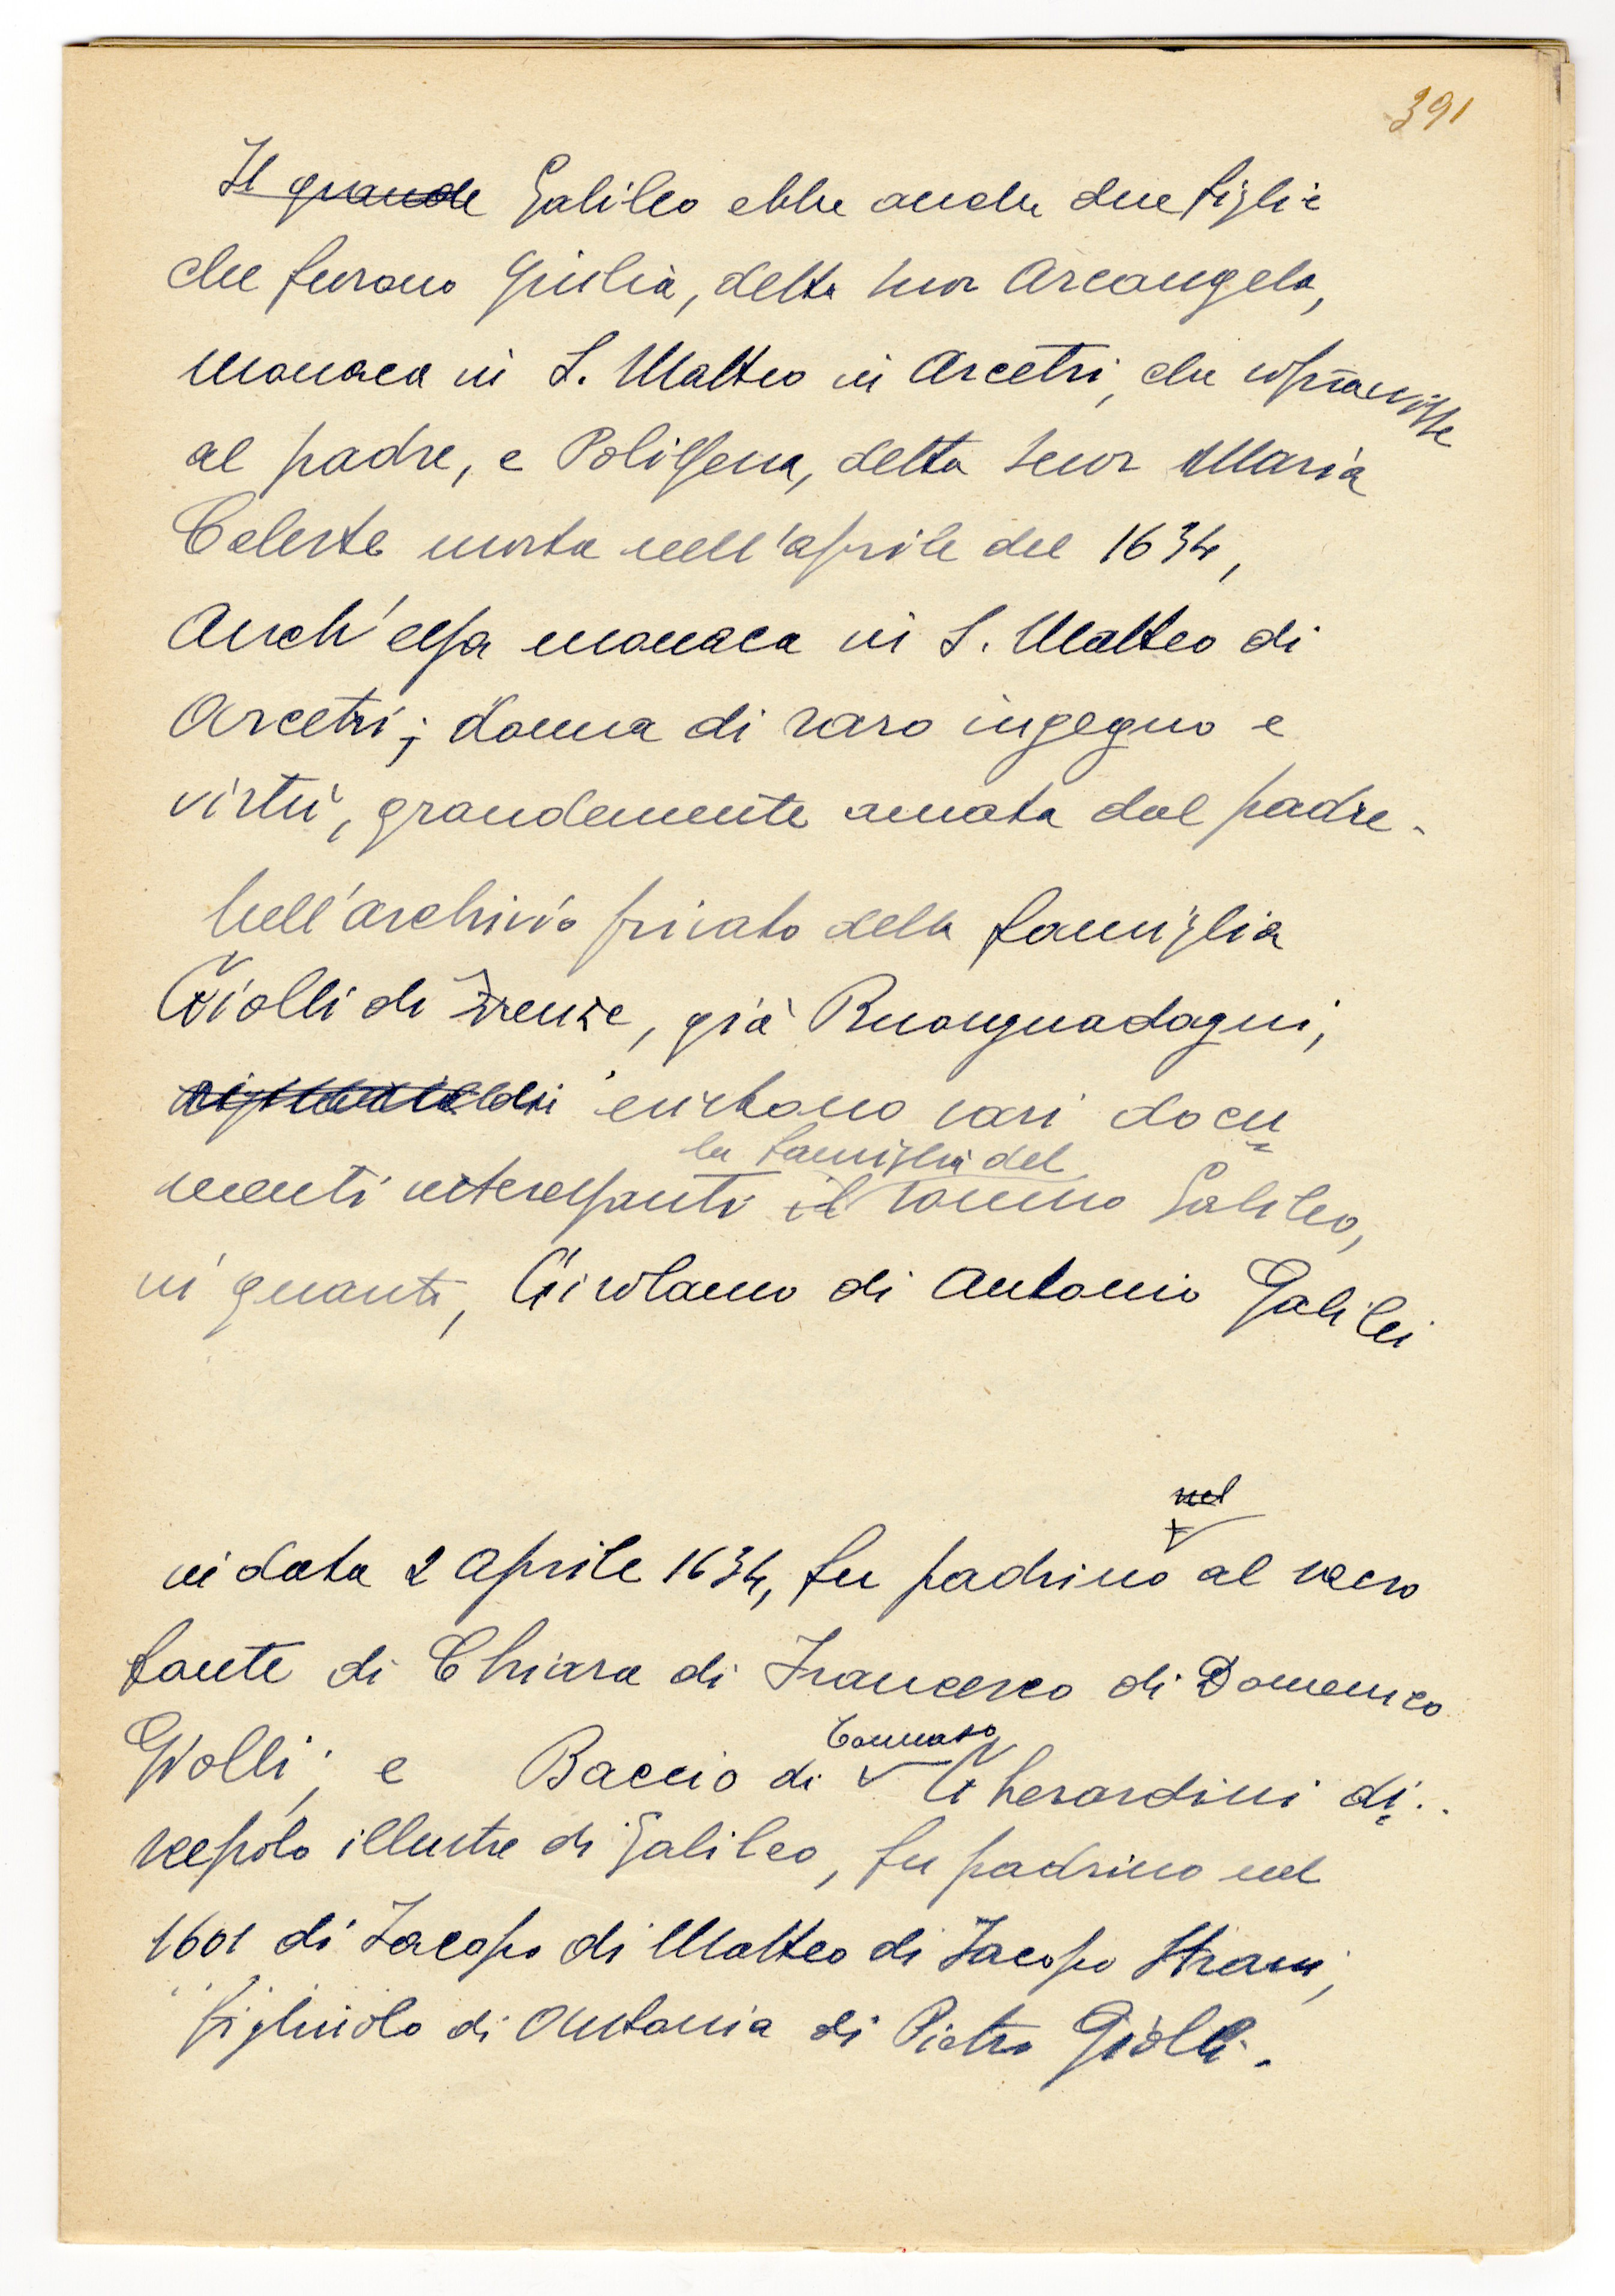 391
Il grande Galileo ebbe anche due figlie
che furono Giulia, detta Suor Arcangela,
monaca in S. Matteo in Arcetri, che sopravvisse
al padre, e Polissena, detta Suor Maria
Celeste morta nell'aprile del 1634,
Anch'essa monaca in S. Matteo di
Arcetri; donna di raro ingegno e
virtù, grandemente amata dal padre.
Nell'archivio privato della famiglia
Giolli di Firenze, già Buonguadagni,
esistono vari docu
la famiglia del
menti interessanti il sommo Galileo,
in quanti, Girolamo di Antonio Galilei
nel
in data 2 Aprile 1634, fu padrino al sacro
fonte di Chiara di Francesco di Domenico
Giolli; e Baccio di Gherardini di
Tommaso
scepolo illustre di Galileo, fu padrino nel
1601 di Jacopo di Matteo di Jacopo
figliuolo di Antonia di Pietro Giolli.